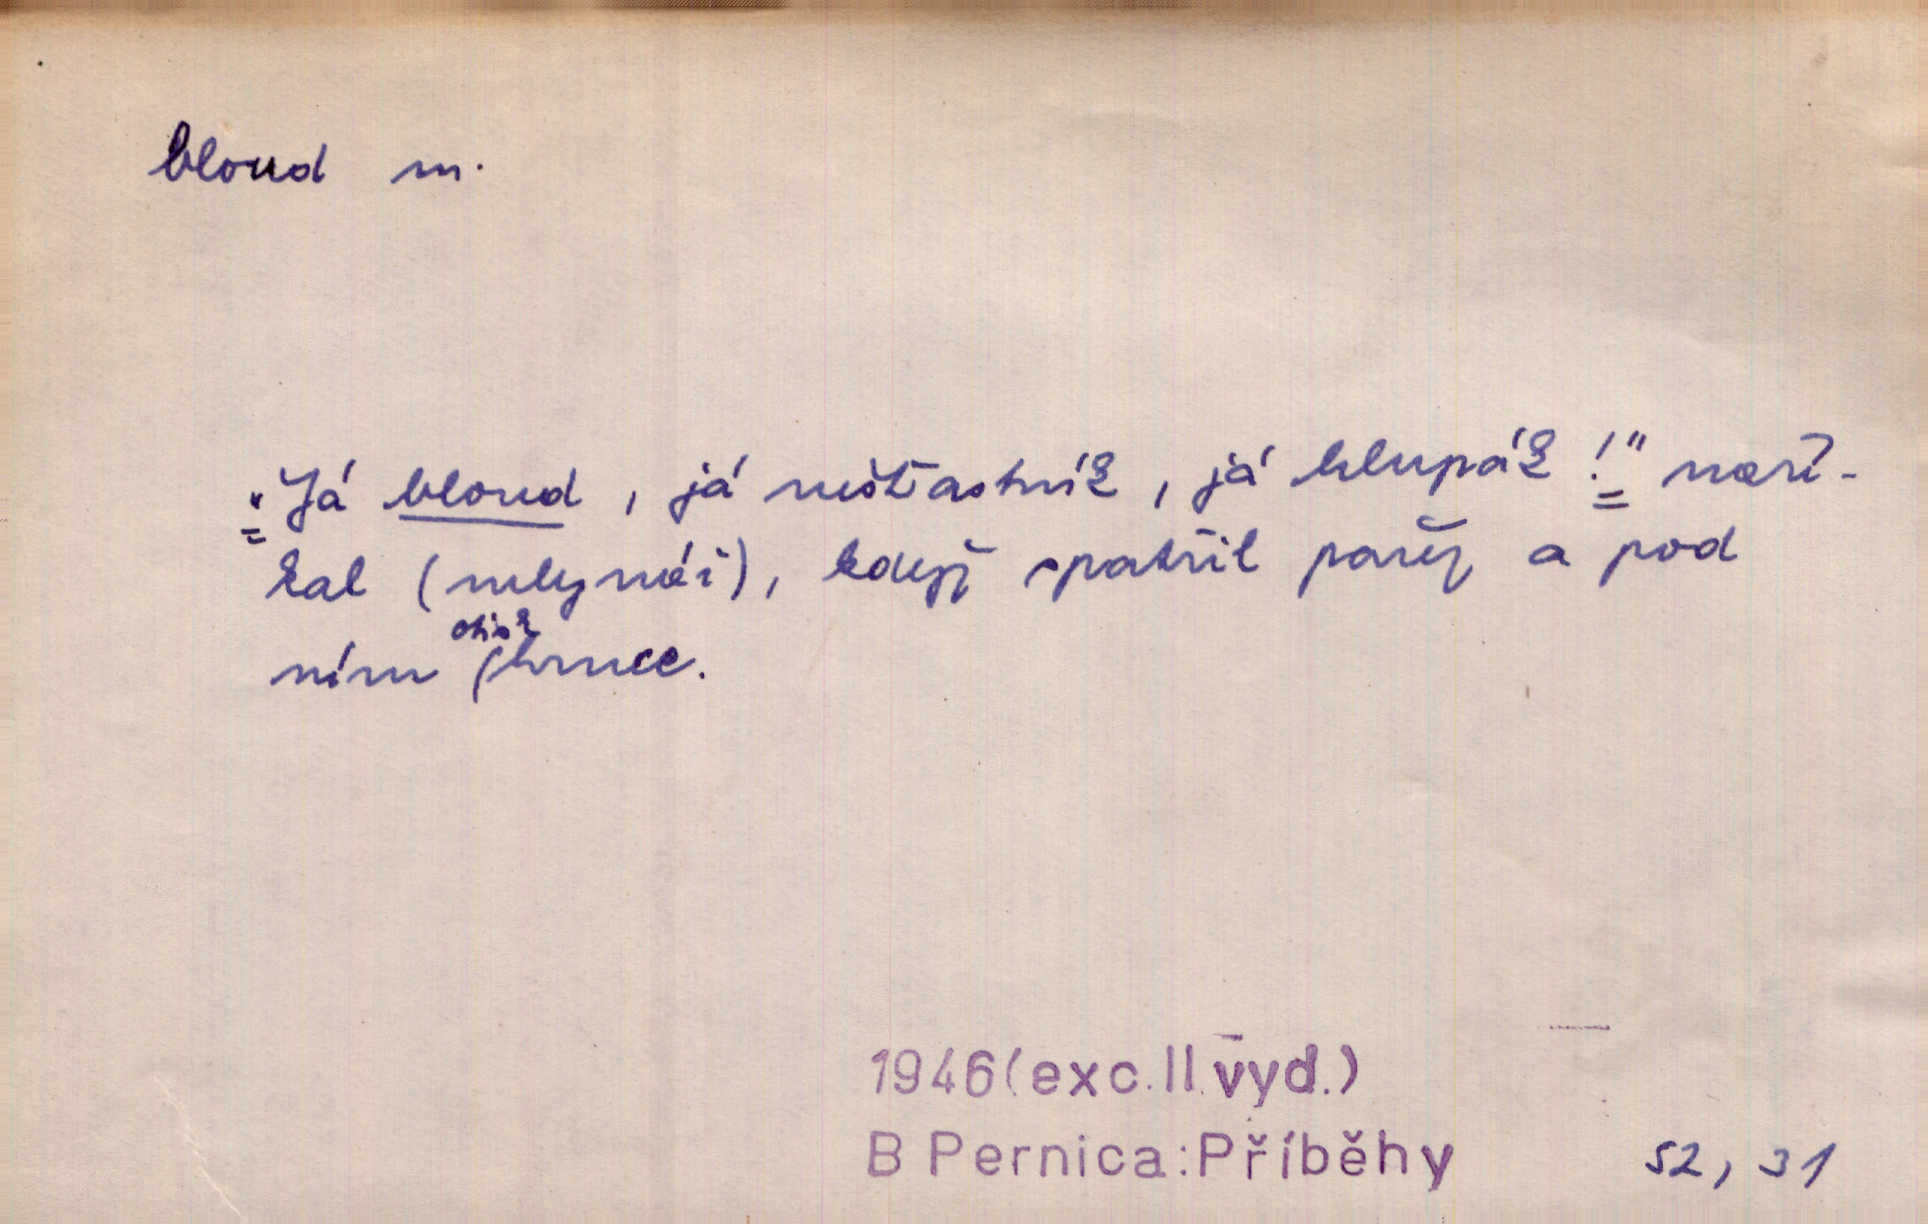 bloud m.
"Já bloud, já nešťastník, já hlupák!" naří-
kal (mlynář), když spatřil pařez a pod
ním otisk hrnce.
1946(exc.II.vyd.)
B Pernica:Příběhy 52, 31